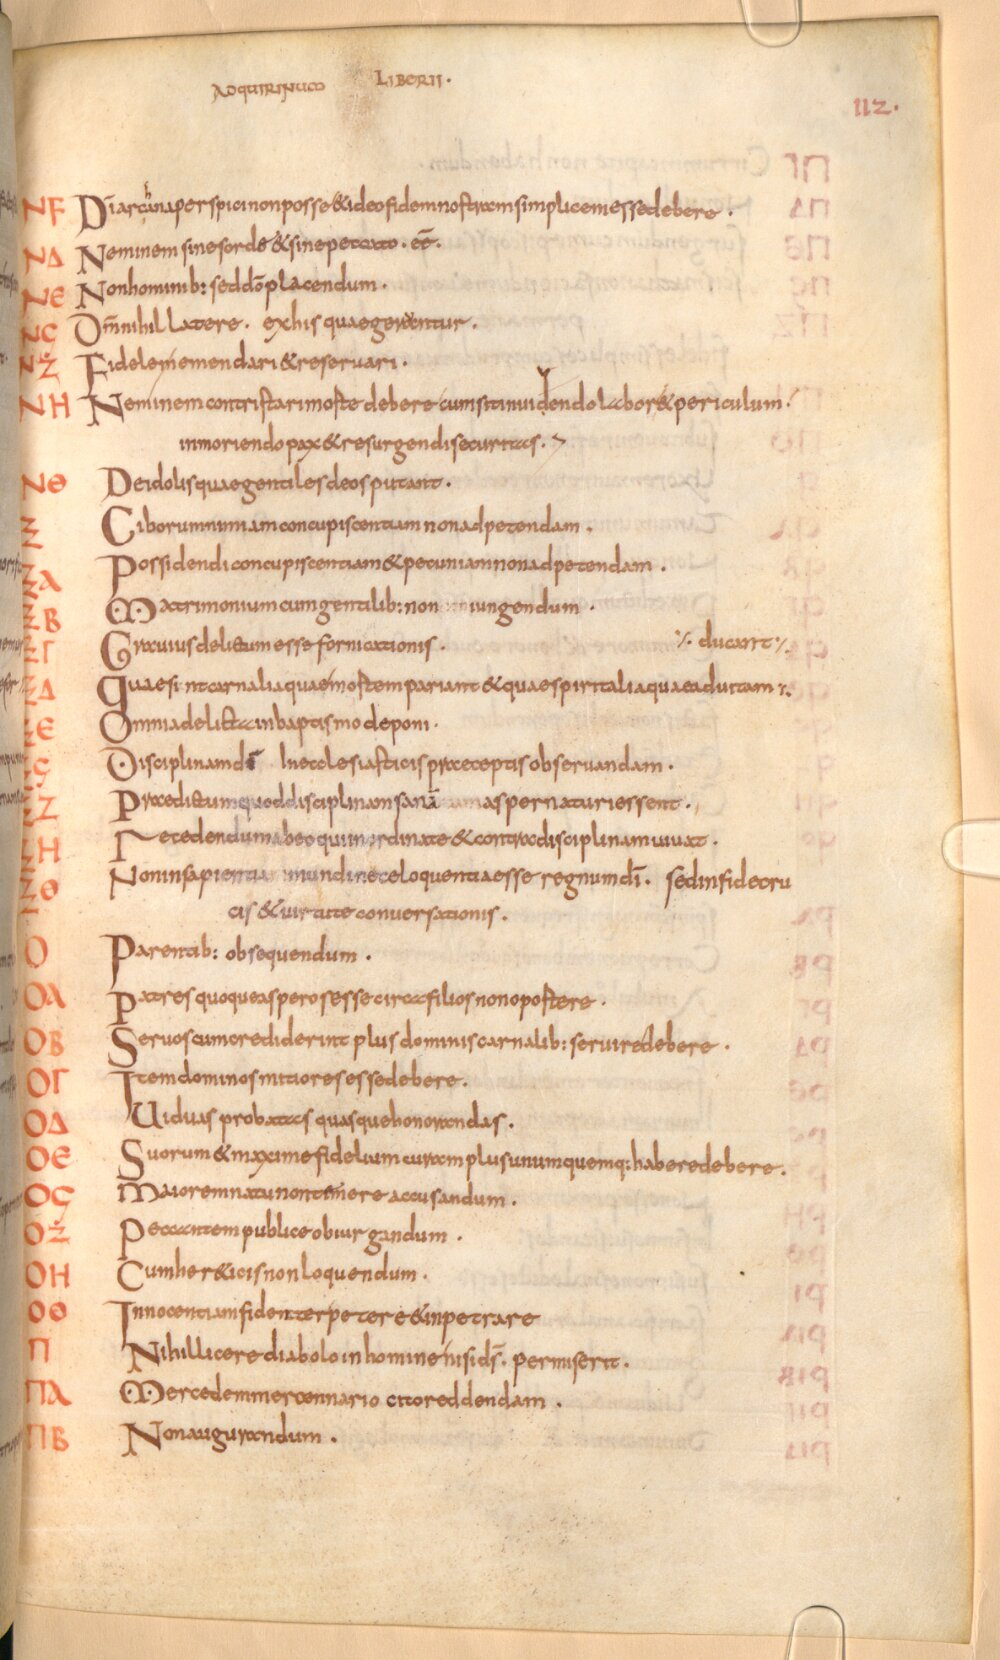 ADQUIRINUM LIBER II·
112·
ΝΓ Dī archana perspici non posse & ideo fidem nostram simplicem esse debere ·
ΝΔ Neminem sine sorde & sine peccato · eē·
ΝΕ Non hominib: sed dō placendum ·
Νϛ Om̄ nihil latere · ex his quae geruntur ·
ΝΖ Fideles emendari & reservari ·
ΝΗ Neminem contristari morte debere cum sit in uidendo labor & periculum ·
in moriendo pax & resurgendi securitas ·
ΝΘ De idolis quae gentiles deos putant ·
Ξ Ciborum nimiam concupiscentiam non adpetendam ·
ΞΑ Possidendi concupiscentiam & pecuniam non adpetendam ·
ΞΒ Matrimonium cum gentilib: non iungendum ·
ΞΓ Grauius delictum esse fornicationis · ducant
ΞΔ Quae sint carnalia quae mortem pariant & quae spiritalia quae ad uitam
ΞΕ Omnia delicta in baptismo deponi ·
Ξϛ Disciplinam dī In eclesiasticis praeceptis observandam ·
ΞΖ Praedictum quod disciplinam sanā aspernaturi essent ·
ΞΗ Recedendum ab eo qui inordinate & contra disciplinam uiuat ·
ΞΘ Non in sapientia mundi nec eloquentia esse regnum dī · sed in fide cru
cis & uirtute conversationis ·
Ο Parentib: obsequendum ·
ΟΑ Patres quoque asperos esse circa filios non oportere ·
ΟΒ Servos cum crediderint plus dominis carnalib: servire debere ·
ΟΓ Item dominos mitiores esse debere ·
ΟΔ Uiduas probatas quasque honorandas ·
ΟΕ Suorum & maxime fidelium curam plus unumquemq: habere debere ·
Οϛ Maiorem natu non temere accusandum ·
ΟΖ Peccantem publice obiurgandum ·
ΟΗ Cum her&icis non loquendum ·
ΟΘ Innocentiam fidenter petere & inpetrare
Π Nihil licere diabolo in homine nisi dš · permiserit ·
ΠΑ Mercedem mercennario cito reddendam ·
ΠΒ Non augurandum ·